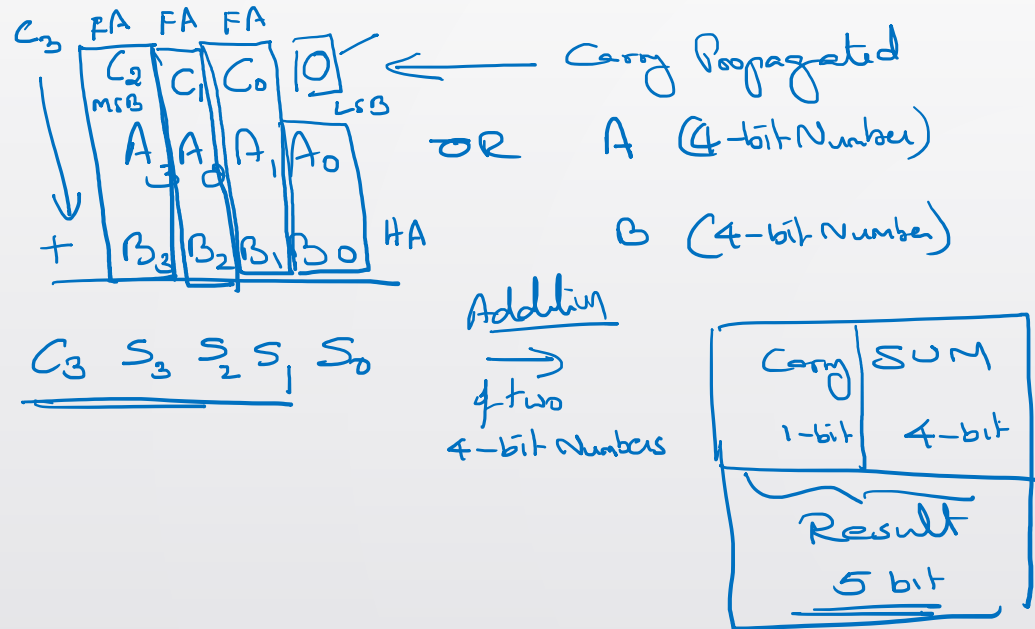 C3 FA FA FA
C2 C1 C0 0 ← Carry Propagated
MSB LSB
A3 A0 A1 A0 OR A (4-bit Number)
+ B3 B2 B1 B0 HA B (4-bit Number)
C3 S3 S2 S1 S0
Addition
→
of two
4-bit Numbers
Carry SUM
1-bit 4-bit
Result
5 bit